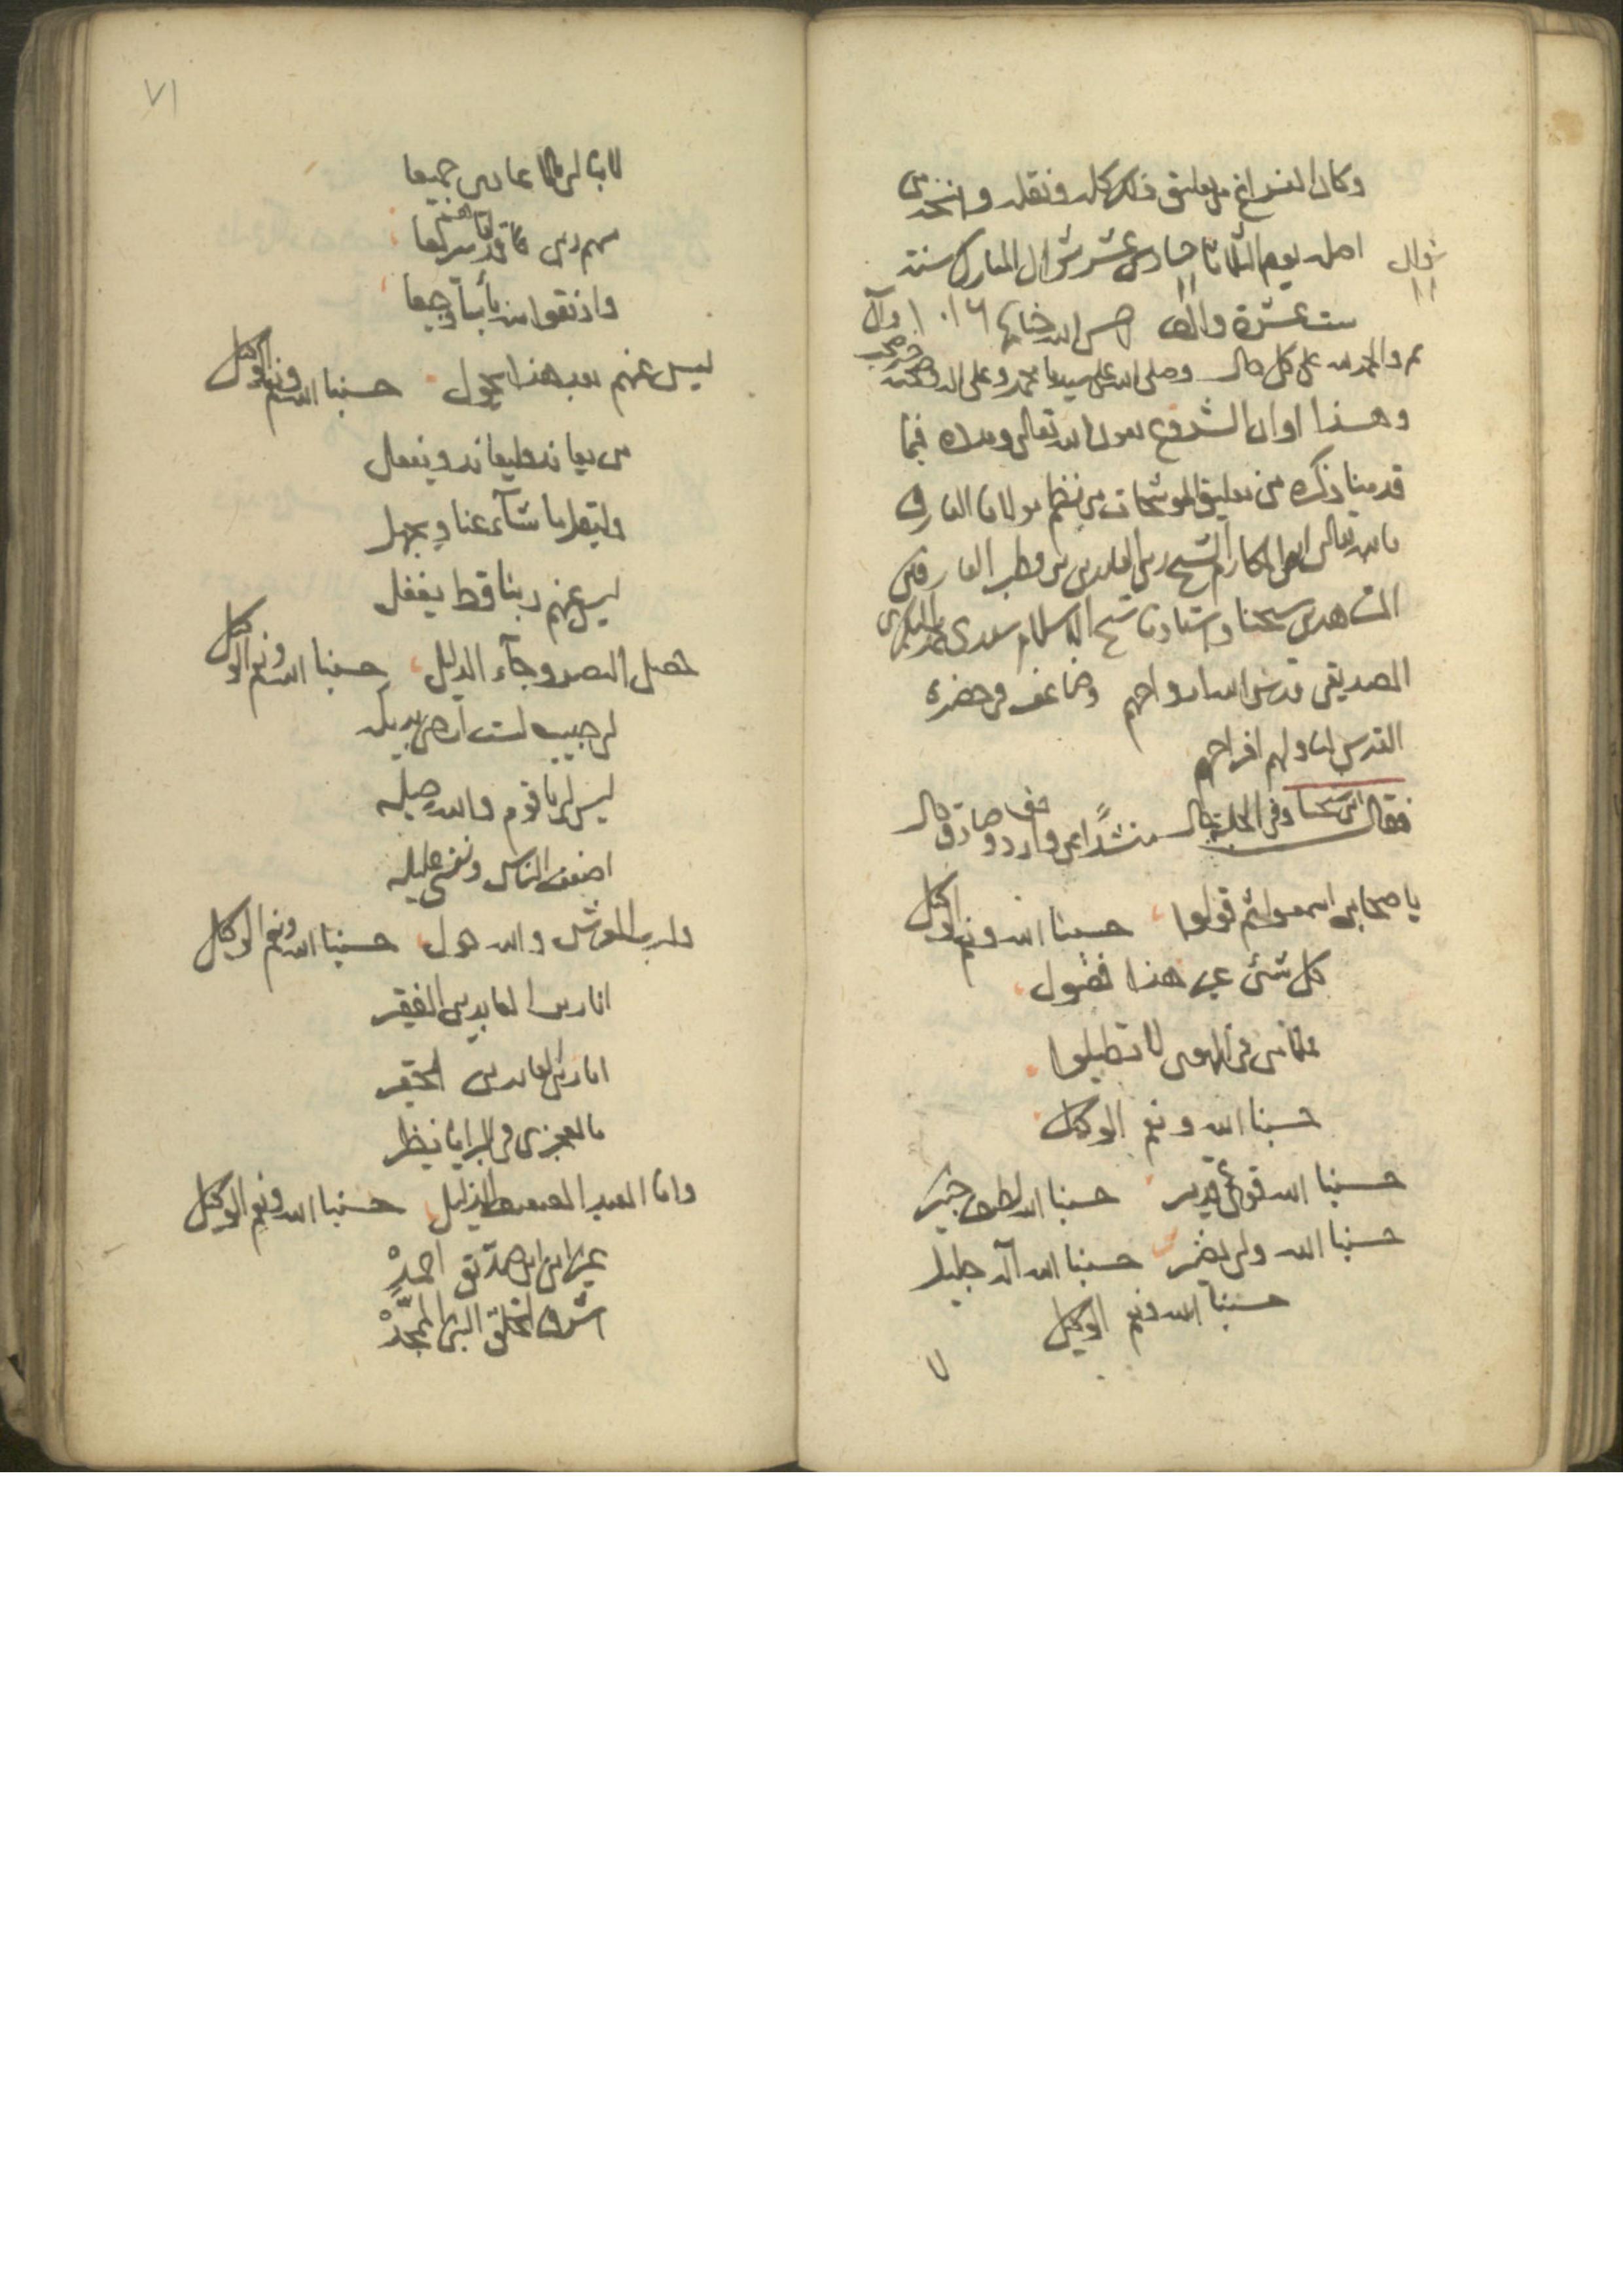 وكان الفراغ من تعليق ذلك كله ونقله وانتخابه من
اصله يوم الثلاثا حادى عشر شوال المبارك سنة
شوال
١١
ست عشرة والف احسن الله ختامها ١٠١٦
والحمد لله على كل حال وصلى الله على سيدنا محمد وعلى اله وصحبه
وهذا اوان الشروع بعون الله تعالى ومدده فيما
قدمنا ذكره من تعليق الموشحات من نظم مولانا العارف
بالله تعالى ابى المكارم الشيخ زين العابدين بن قطب العارفين
شيخنا واستاذنا شيخ الاسلام سيدى محمد البكرى
الصديقى قدس الله ارواحهم وضاعف فى حضرة
القدس لنا ولهم افراحهم
فقال ابن شيخنا وفى الحلية قال منشدا عن وارد وصادق حال
يا صحابى اسمعوا ثم قولوا حسبنا الله ونعم الوكيل
كل شئ غير هذا فضول
فى الهوى لا تطيلوا
حسبنا الله ونعم الوكيل
حسبنا الله قوى قدير حسبنا الله لطيف خبير
حسبنا الله ولى نصير حسبنا الله اله جليل
حسبنا الله ونعم الوكيل
٧١
جميعا
سريعا
واذقهم وجيعا
ليس عنهم بعد هذا يحول حسبنا الله ونعم الوكيل
من يعاند فليعاند ويفعل
وليقل ما شآء عنا ويجهل
ليس عنهم ربنا قط يغفل
حصل النصر وجآء الدليل حسبنا الله ونعم الوكيل
لى حبيب لست ارضى بديله
ليس لى يا قوم والله حيله
اضعف الناس ونفسى عليله
ولرب العرش والله حول حسبنا الله ونعم الوكيل
انا زين العابدين الفقير
انا زين العابدين الحقير
ما لعجزى فى البرايا نظير
وانا العبد الضعيف الذليل حسبنا الله ونعم الوكيل
غير انى ابن صديق احمد
اشرف الخلق النبى الممجد